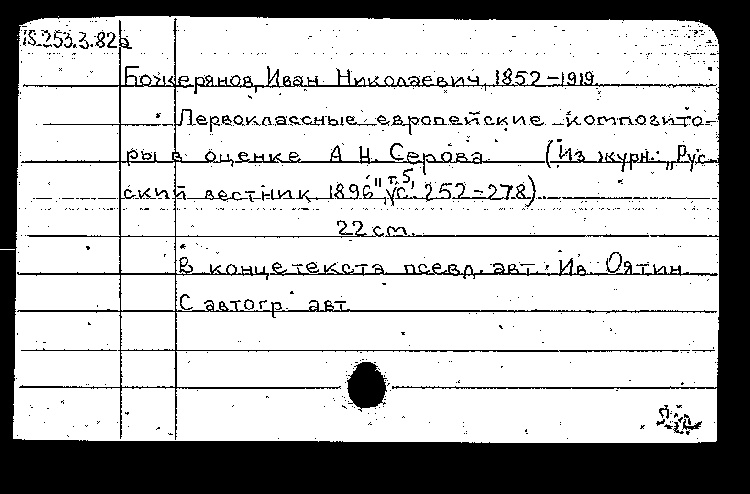 18.253.3.82а
Божерянов, Иван Николаевич, 1852-1919.
Первоклассные европейские композито-
ры в оценке А. Н. Серова. (Из журн.: „Рус-
ский вестник 1896", т. 5, с. 252-278)
22 см.
В конце текста псевд. авт.: Ив. Оятин.
С автогр. авт.